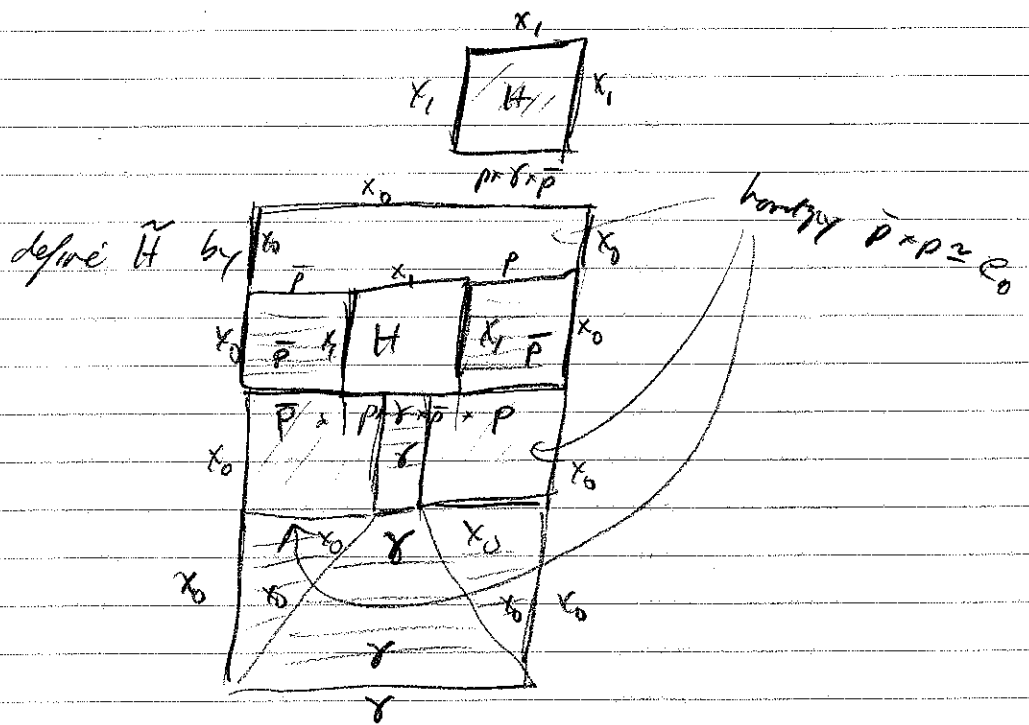 x₁
x₁ H x₁
p * γ * p̄
x₀
define H̃ by x₀ x₀ p̄ * p ≃ e₀
p̄ x₁ p
x₀ p̄ x₁ H x₁ p̄ x₀
p̄ * p * γ * p̄ * p
x₀ γ x₀
x₀ γ x₀
x₀ x₀ x₀ x₀
γ
γ